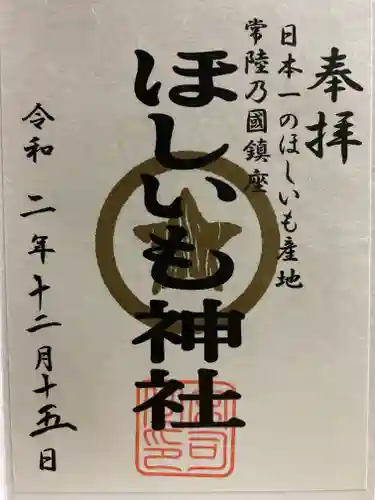 奉拝
日本一のほしいも産地
常陸乃國鎮座
ほしいも神社
令和二年十二月十五日